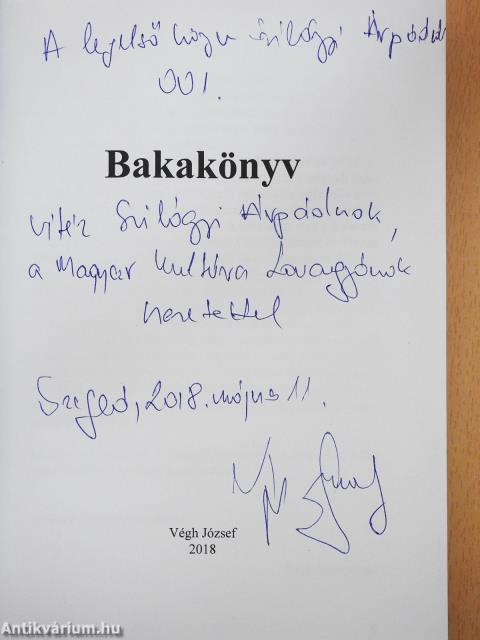 A legelső hozu Szilágyi Árpádnak
001.
Bakakönyv
vitéz Szilágyi Árpádnak,
a Magyar Kultúra Lovagjának
szeretettel
Szeged, 2018. május 11.
Végh József
2018
Antikvárium.hu